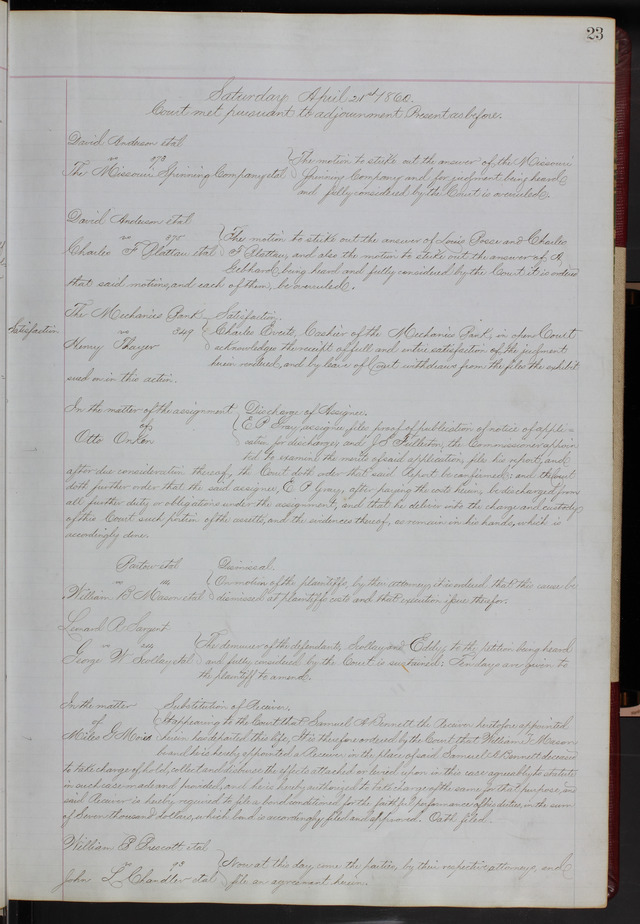 23
Saturday April 21st 1860.
Court met pursuant to adjournment Present as before.
David Anderson et al
vs 973
The Missouri Spinning Company et al
The motion to strike out the answer of the Missouri
Spinning Company and for judgment being heard
and fully considered by the Court is overruled.
David Anderson et al
vs
Charles F Plattau et al
The motion to strike out the answer of Louis Posse and Charles
F Plattau, and also the motion to strike out the answer of A,
Gebhard, being heard and fully considered by the Court it is ordered
that said motions, and each of them, be overruled.
Satisfaction
The Mechanics Bank
vs 349
Henry Thayer
Satisfaction.
Charles Everts, Cashier of the Mechanics Bank, in open Court
acknowledges the receipt of full and entire satisfaction of the judgment
herein rendered, and by leave of Court withdraws from the files the exhibit
sued on in this action.
In the matter of the assignment
of
Otto Onken
Discharge of Assignee.
E P Gray, assignee, files proof of publication of notice of appli-
cation for discharge, and J S Fullerton, the Commissioner appoin
ted to examine the merits of said application, files his report, and
after due consideration thereof, the Court doth order that said Report be confirmed; and the Court
doth further order that the said assignee, E P Gray, after paying the costs herein, be discharged from
all further duty or obligations under the assignment, and that he deliver into the charge and custody
of this Court such portion of the assets, and the evidences thereof, as remain in his hands, which is
accordingly done.
Partow et al
vs
William B Mason et al
Dismissal.
On motion of the plaintiffs, by their attorney, it is ordered that this cause be
dismissed at plaintiffs costs and that execution issue therefor.
Lenard R Sargent
vs
George W Scollay et al
The demurrer of the defendants, Scollay and Eddy, to the petition being heard
and fully considered by the Court is sustained: Ten days are given to
the plaintiff to amend.
In the matter
of
Miles G Moies
Substitution of Receiver.
It appearing to the Court that Samuel A Bennett the Receiver heretofore appointed
herein has departed this life, It is therefore ordered by the Court that William T Mason
be and he is hereby appointed a Receiver in the place of said Samuel A Bennett deceased
to take charge of hold, collect and disburse the effects attached or levied upon in this case agreeably to statute
in such case made and provided, and he is hereby authorized to take charge of the same for that purpose, and
said Receiver is hereby required to file a bond conditioned for the faithful performance of his duties, in the sum
of Seven thousand dollars, which bond is accordingly filed and approved. Oath filed.
William P Prescott et al
vs 93
John L Chandler et al
Now at this day, come the parties, by their respective attorneys, and
file an agreement herein.